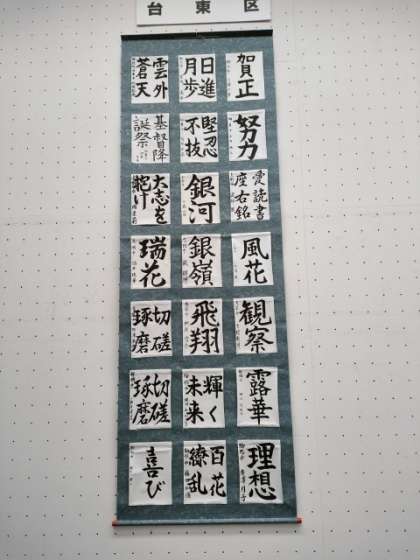 台東区
賀正
日進
月歩
雲外
蒼天
努力
堅忍
不抜
基督降
誕祭
愛読書
座右銘
銀河
大志を
抱け
風花
銀嶺
瑞花
観察
飛翔
切磋
琢磨
露華
輝く
未来
切磋
琢磨
理想
百花
繚乱
喜び